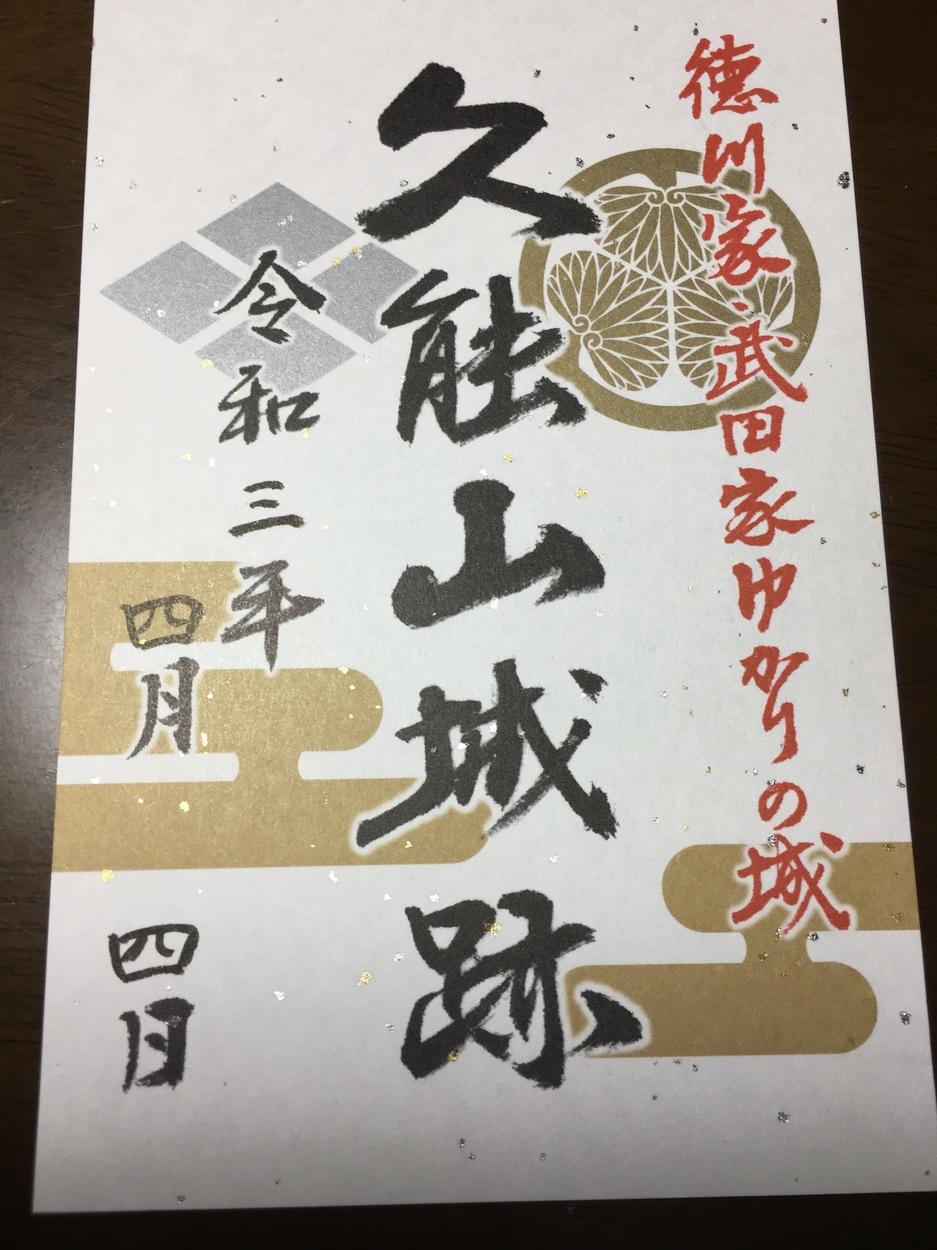 徳川家・武田家ゆかりの城
久能山城跡
令和三年
四月
四月